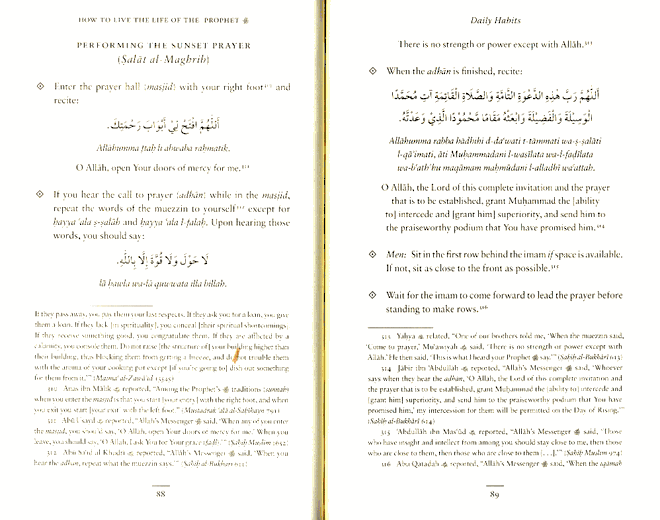 HOW TO LIVE THE LIFE OF THE PROPHET ﷺ
PERFORMING THE SUNSET PRAYER
(Ṣalāt al-Maghrib)
Enter the prayer hall (masjid) with your right foot and
recite:
اَللّٰهُمَّ افْتَحْ لِيْ أَبْوَابَ رَحْمَتِكَ.
Allāhumma ftaḥ lī abwāba raḥmatik.
O Allāh, open Your doors of mercy for me.
If you hear the call to prayer (adhān) while in the masjid,
repeat the words of the muezzin to yourself except for
ḥayya ʿala ṣ-ṣalāh and ḥayya ʿala l-falāḥ. Upon hearing those
words, you should say:
لَا حَوْلَ وَلَا قُوَّةَ إِلَّا بِاللّٰهِ.
lā ḥawla wa-lā quwwata illa billāh.
If they pass away, you pay them your last respects. If they ask you for a loan, you give
them a loan. If they lack [in spirituality], you conceal [their spiritual shortcomings].
If they receive something good, you congratulate them. If they are afflicted by a
calamity, you console them. Do not raise [the structure of] your building higher than
their building, thus blocking them from getting a breeze, and do not trouble them
with the aroma of your cooking pot except [if you're going to] dish out something
for them from it.'"
310 Anas ibn Mālik reported, "Among the Prophet's ﷺ traditions [sunnah]
when you enter the masjid is that you start [your entry] with the right foot, and when
you exit you start [your exit] with the left foot."
311 Abū reported, "Allāh's Messenger ﷺ said, 'When any of you enter
the masjid, you should say, 'O Allāh, open Your doors of mercy for me.' When you
leave, you should say, 'O Allāh, I ask You for Your grace
312 Abū Saʿīd al-Khudrī reported, "Allāh's Messenger ﷺ said, 'When you
hear the adhān, repeat what the muezzin says.'"
88
Daily Habits
There is no strength or power except with Allāh.³¹³
When the adhān is finished, recite:
اَللّٰهُمَّ رَبَّ هٰذِهِ الدَّعْوَةِ التَّامَّةِ وَالصَّلَاةِ الْقَائِمَةِ آتِ مُحَمَّدًا
الْوَسِيْلَةَ وَالْفَضِيْلَةَ وَابْعَثْهُ مَقَامًا مَحْمُوْدًا الَّذِيْ وَعَدْتَهُ.
Allāhumma rabba hādhihi d-daʿwati t-tāmmati wa-ṣ-ṣalāti
l-qāʾimati, āti Muḥammadani l-wasīlata wa-l-faḍīlata
wa-bʿath'hu maqāmam maḥmūdani l-alladhī waʿattah.
O Allāh, the Lord of this complete invitation and the prayer
that is to be established, grant Muḥammad the [ability
to] intercede and [grant him] superiority, and send him to
the praiseworthy podium that You have promised him.³¹⁴
Men: Sit in the first row behind the imam if space is available.
If not, sit as close to the front as possible.³¹⁵
Wait for the imam to come forward to lead the prayer before
standing to make rows.³¹⁶
313 Yaḥya related, "One of our brothers told me, 'When the muezzin said,
'Come to prayer,' Muʿāwiyah said, 'There is no strength or power except with
Allāh.' He then said, 'This is what I heard your Prophet ﷺ say.'" (Ṣaḥīḥ al-Bukhārī 613)
314 Jābir ibn ʿAbdullāh reported, "Allāh's Messenger ﷺ said, 'Whoever
says when they hear the adhān, 'O Allāh, the Lord of this complete invitation and
the prayer that is to be established, grant Muḥammad the [ability to] intercede and
[grant him] superiority, and send him to the praiseworthy podium that You have
promised him,' my intercession for them will be permitted on the Day of Rising.'"
(Ṣaḥīḥ al-Bukhārī 614)
315 ʿAbdullāh ibn Masʿūd reported, "Allāh's Messenger ﷺ said, 'Those
who have insight and intellect from among you should stay close to me, then those
who are close to them, then those who are close to them [...].'" (Ṣaḥīḥ Muslim
316 Abū Qatādah reported, "Allāh's Messenger ﷺ said, 'When the iqāmah
89